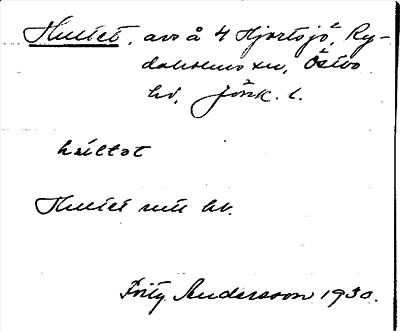 Hultet, avs å 4 Hjortsjö, Ry-
daholms sn, Östbo
hd, Jönk. l.
húltət
Hultet mtl kb.
Fritz Andersson 1930.